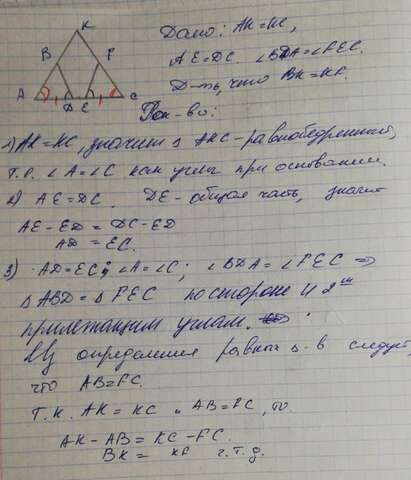 K
B P
A D E C
Дано: AK=KC,
AE=DC. ∠BDA=∠PEC.
Д-ть, что BK=KP.
Док-во:
1) AK=KC, значит △ AKC - равнобедренный,
т.е. ∠A=∠C как углы при основании.
2) AE=DC. DE - общая часть, значит
AE-ED = DC-ED
AD = EC.
3) AD=EC; ∠A=∠C; ∠BDA=∠PEC =>
△ABD=△PEC по стороне и 2ум
прилежащим углам.
Из определения равных △-в следует,
что AB=PC.
Т.к. AK=KC и AB=PC, то
AK-AB=KC-PC.
BK= KP ч.т.д.